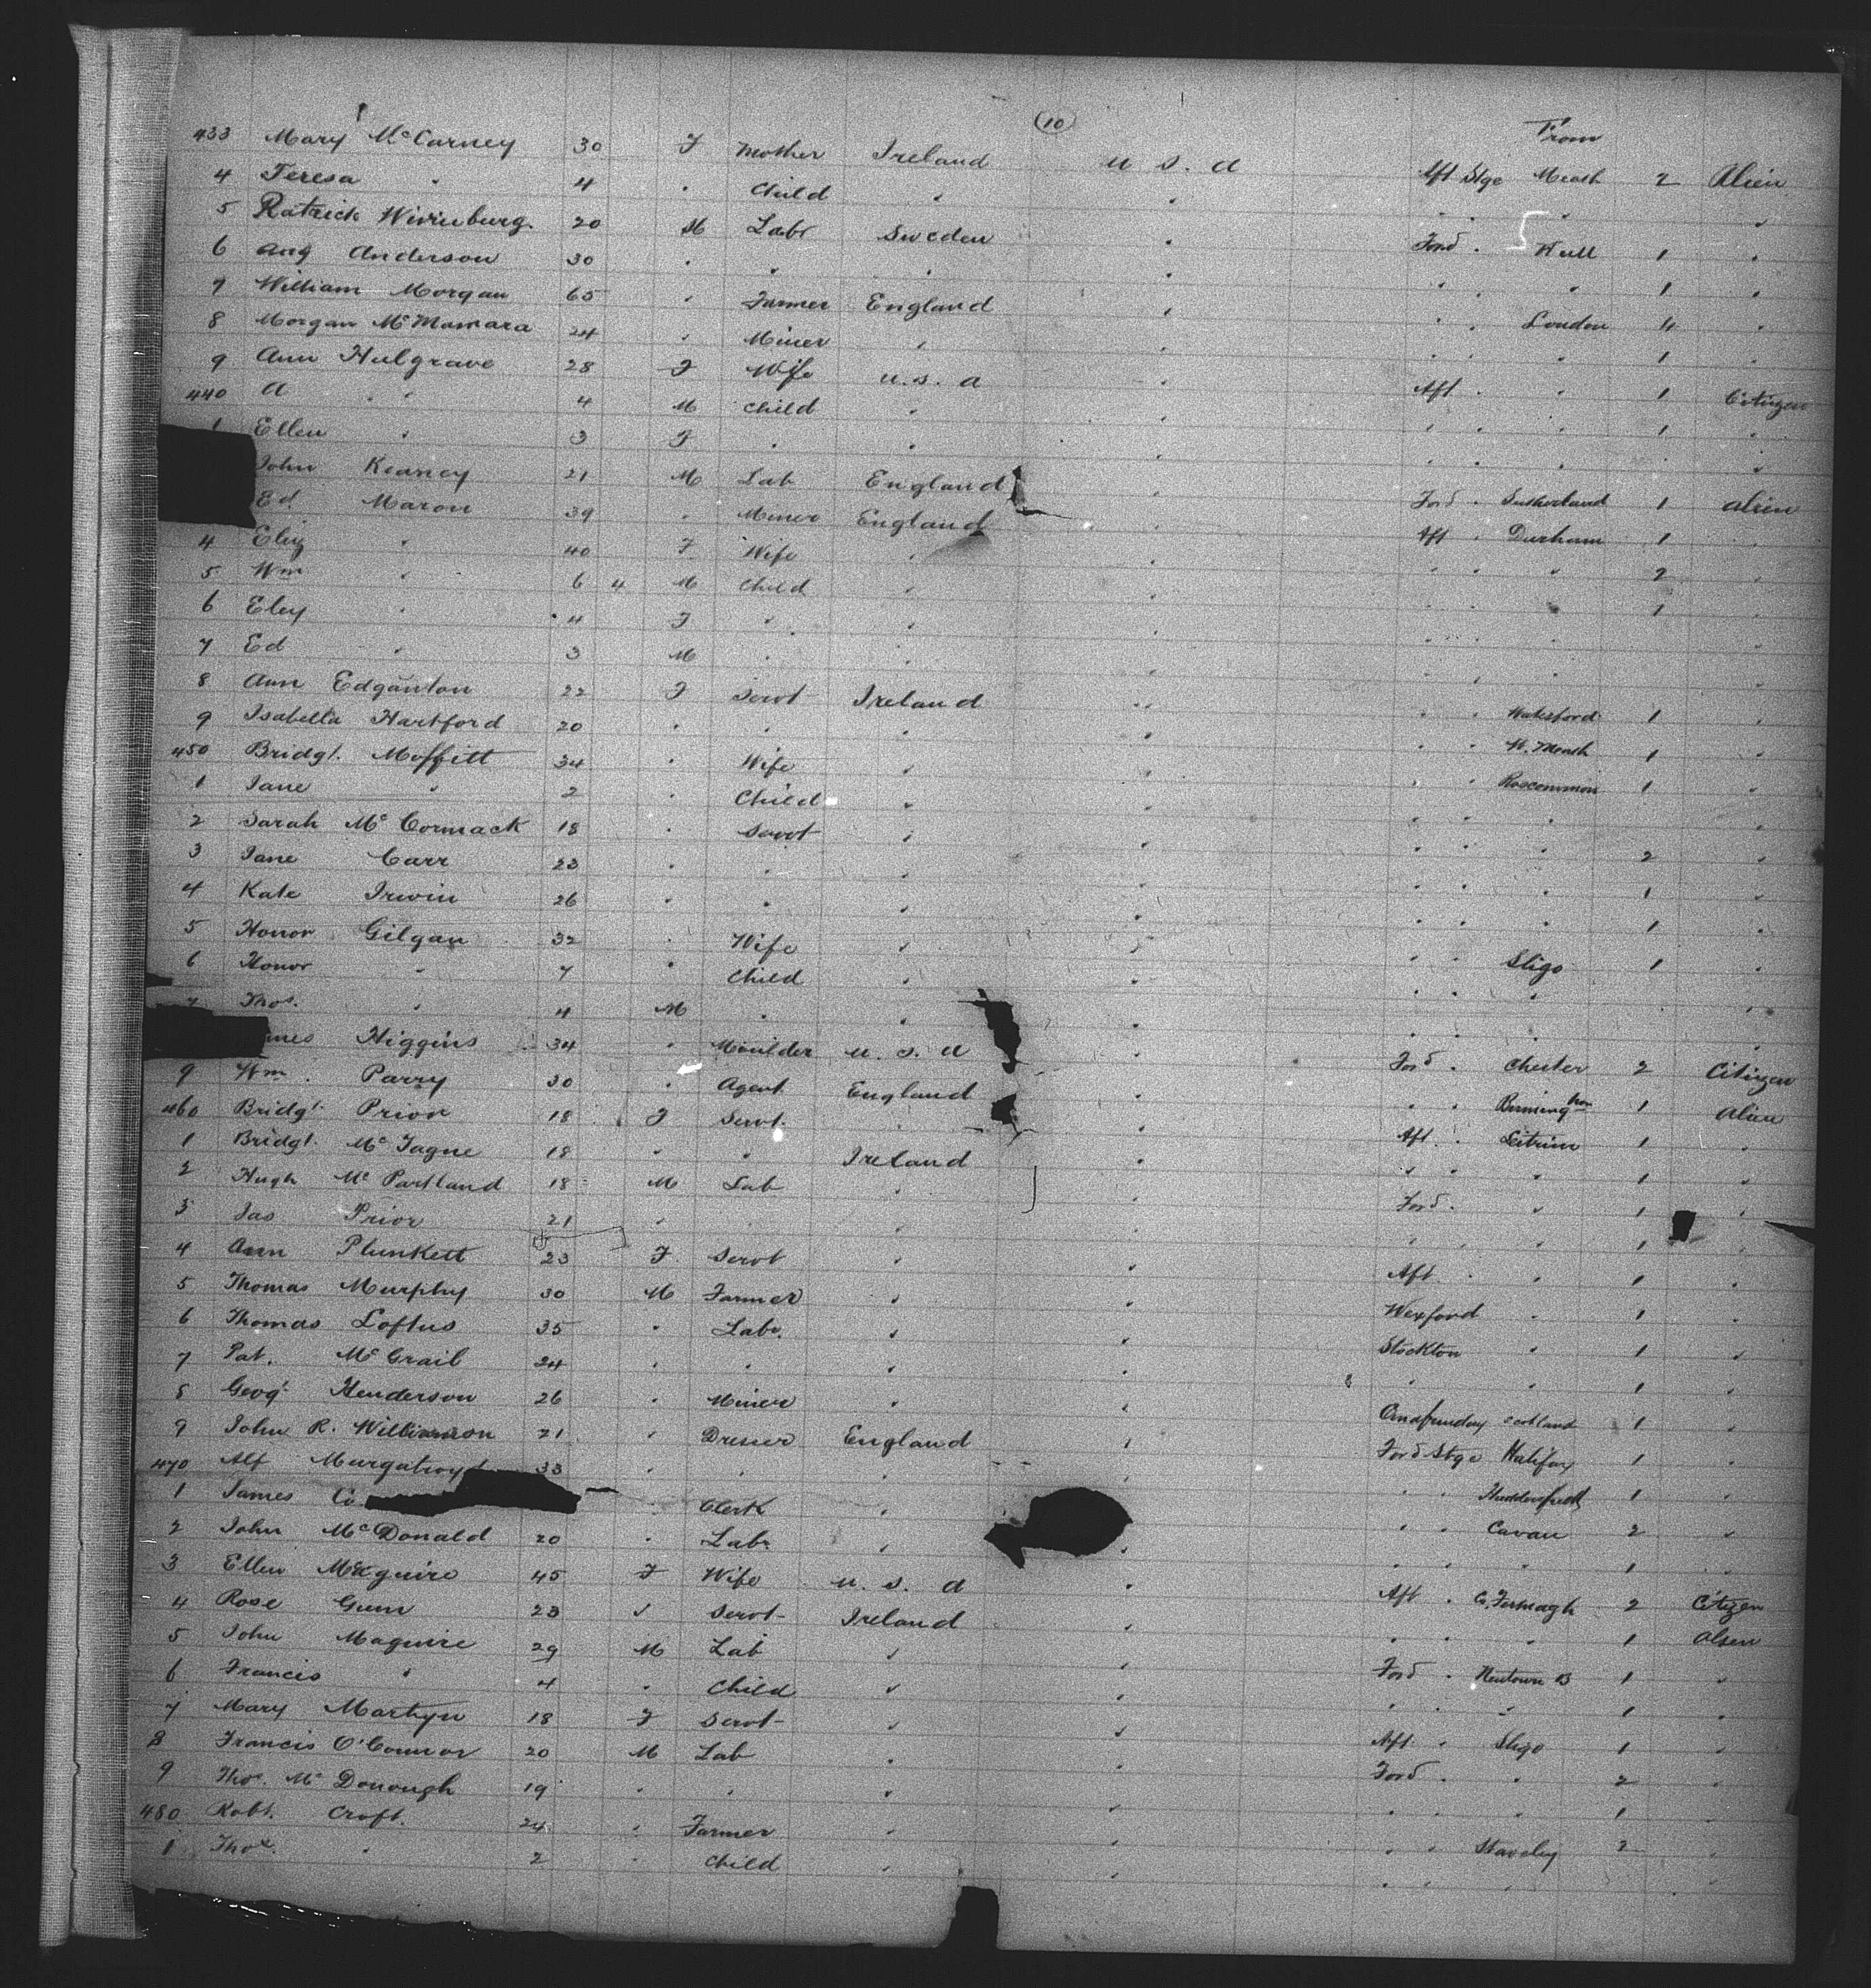 (10)
From
433 Mary McCarney 30 F Mother Ireland U S. A Aft Stge Meath 2 Alien
4 Teresa " 4 " Child " " " " " "
5 Patrick 20 M Labr Sweden " Ford " Hull 1 "
6 Aug Anderson 30 " " " " " " " 1 "
7 William Morgan 65 " Farmer England " " " London 4 "
8 Morgan McMamara 24 " Miner " " " " " 1 "
9 Ann Hulgrave 28 F Wife U.S. A " Aft " " 1 Citizen
440 A " " 4 M Child " " " " " 1 "
1 Ellen " 3 F " " " " " " " "
John Kearney 21 M Lab England " Ford " Sutherland 1 Alien
Ed Maron 39 " Miner England " Aft " Durham 1 "
4 Eliz " 40 F Wife " " " " " 2 "
5 Wm " 6 4 M Child " " " " " 1 "
6 Eley " 4 F " " " " " " "
7 Ed " 3 M " " " " " " "
8 Ann Edganton 22 F Servt Ireland " " " Waterford 1 "
9 Isabella Hartford 20 " " " " " " W. Meath 1 "
450 Bridgt. Moffitt 34 " Wife " " " " Roscommon 1 "
1 Jane " 2 " Child " " " " " "
2 Sarah McCormack 18 " Servt " " " " " 2 "
3 Jane Carr 23 " " " " " " " 1 "
4 Kate Irwin 26 " " " " " " " 1 "
5 Honor Gilgan 32 " Wife " " " " Sligo 1 "
6 Honor " 7 " Child " " " " " "
7 Thos. " 4 M " " " " " "
mes Higgins 34 " Moulder U. S. A " Ford " Chester 2 Citizen
9 Wm. Parry 30 " Agent England " " " Birminghm 1 Alien
460 Bridgt. Prior 18 F Servt. " " Aft " Leitrim 1 "
1 Bridgt. McTague 18 " " Ireland " " " " 1 "
2 Hugh McPartland 18 M Lab " " Ford " " 1 "
3 Jas Prior 21 " " " " " " " 1 "
4 Ann Plunkett 23 F Servt " " Aft " " 1 "
5 Thomas Murphy 30 M Farmer " " Wexford " 1 "
6 Thomas Loftus 35 " Labr. " " Stockton " 1 "
7 Pat. McGrail 24 " " " " " " 1 "
8 Geog. Henderson 26 " Miner " " Scotland 1 "
9 John R. Williamson 21 " Dresser England " Ford Stge Halifax 1 "
470 Alf Murgatroyd 33 " " " " " " 1 "
1 James Co " Clerk " " " " Cavan 2 "
2 John McDonald 20 " Labr " " " " " 1 "
3 Ellen Maguire 45 F Wife U. S. A " Aft " Co. Fermagh 2 Citizen
4 Rose Gunn 23 " Servt Ireland " " " " 1 Alien
5 John Maguire 29 M Lab " " Ford " Newtown B 1 "
6 Francis " 4 " Child " " " " " 1 "
7 Mary Martyn 18 F Servt " " Aft. " Sligo 1 "
8 Francis O'Connor 20 M Lab " " Ford " " 2 "
9 Thos. McDonough 19 " " " " " " " 1 "
480 Robt. Croft. 24 " Farmer " " " " Staveley 2 "
1 Thos. " 2 " Child " " " " " "